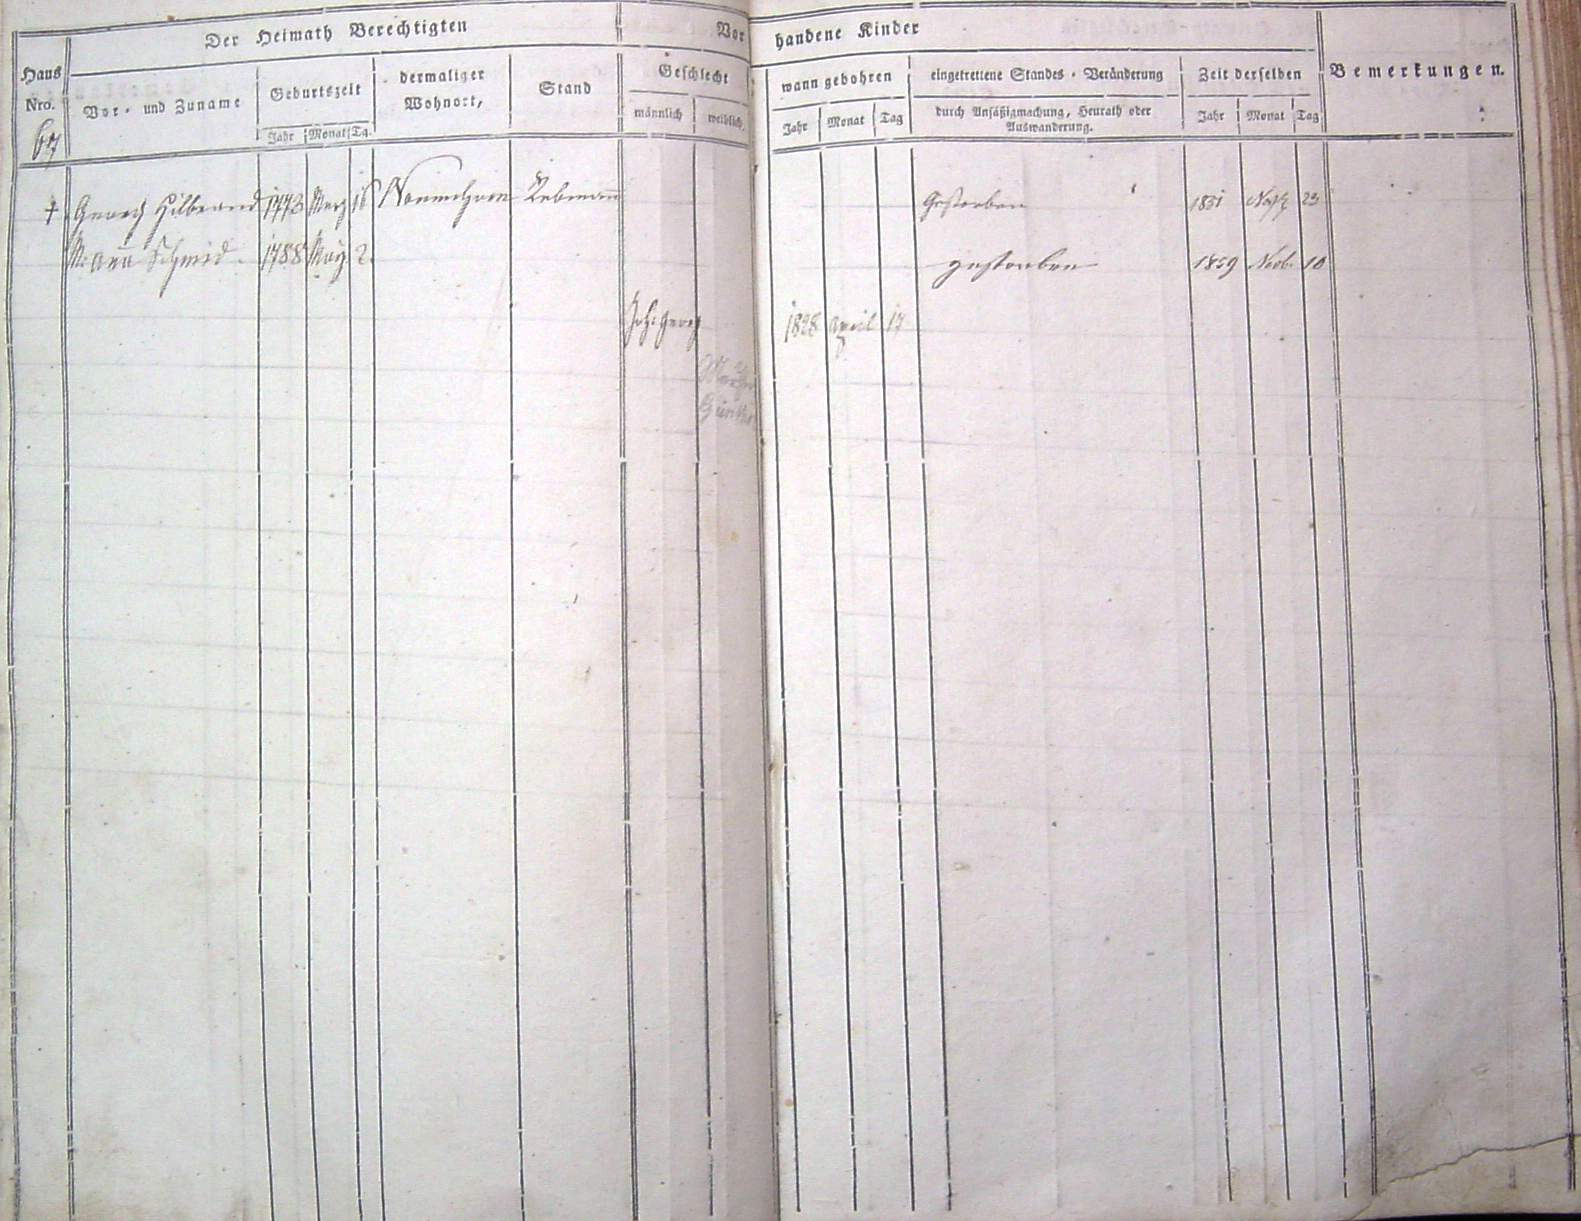 Der Heimath Berechtigten
Vorhandene Kinder
Haus Nro. 67
Vor- und Zuname
Geburtszeit
Jahr Monat Tg.
dermaliger Wohnort,
Stand
Geschlecht
männlich weiblich.
wann gebohren
Jahr Monat Tag
eingetrettene Standes-Veränderung
durch Ansäßigmachung, Heurath oder
Auswanderung.
Zeit derselben
Jahr Monat Tag
Bemerkungen.
† Georg Hilbrand 1773 Merz 16 Nonnenhorn Rebmann Gestorben 1831 23
M: Anna Schmid 1788 May 2. gestorben 1859 Novb. 10
Joh: Georg 1828 April 17